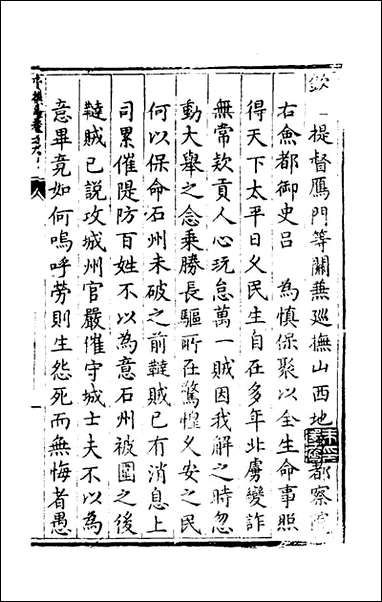 欽 提督鴈門等關兼巡撫山西地 都察
右僉都御史呂 為慎保聚以全生命事照
得天下太平日久民生自在多年北虜變詐
無常欵貢人心玩怠萬一賊因我解之時忽
動大舉之念乗勝長驅所在驚惶乂安之民
何以保命石州未破之前韃賊已有消息上
司累催隄防百姓不以為意石州被圍之後
韃賊已說攻城州官嚴催守城士夫不以為
意畢竟如何嗚呼勞則生怨死而無悔者愚